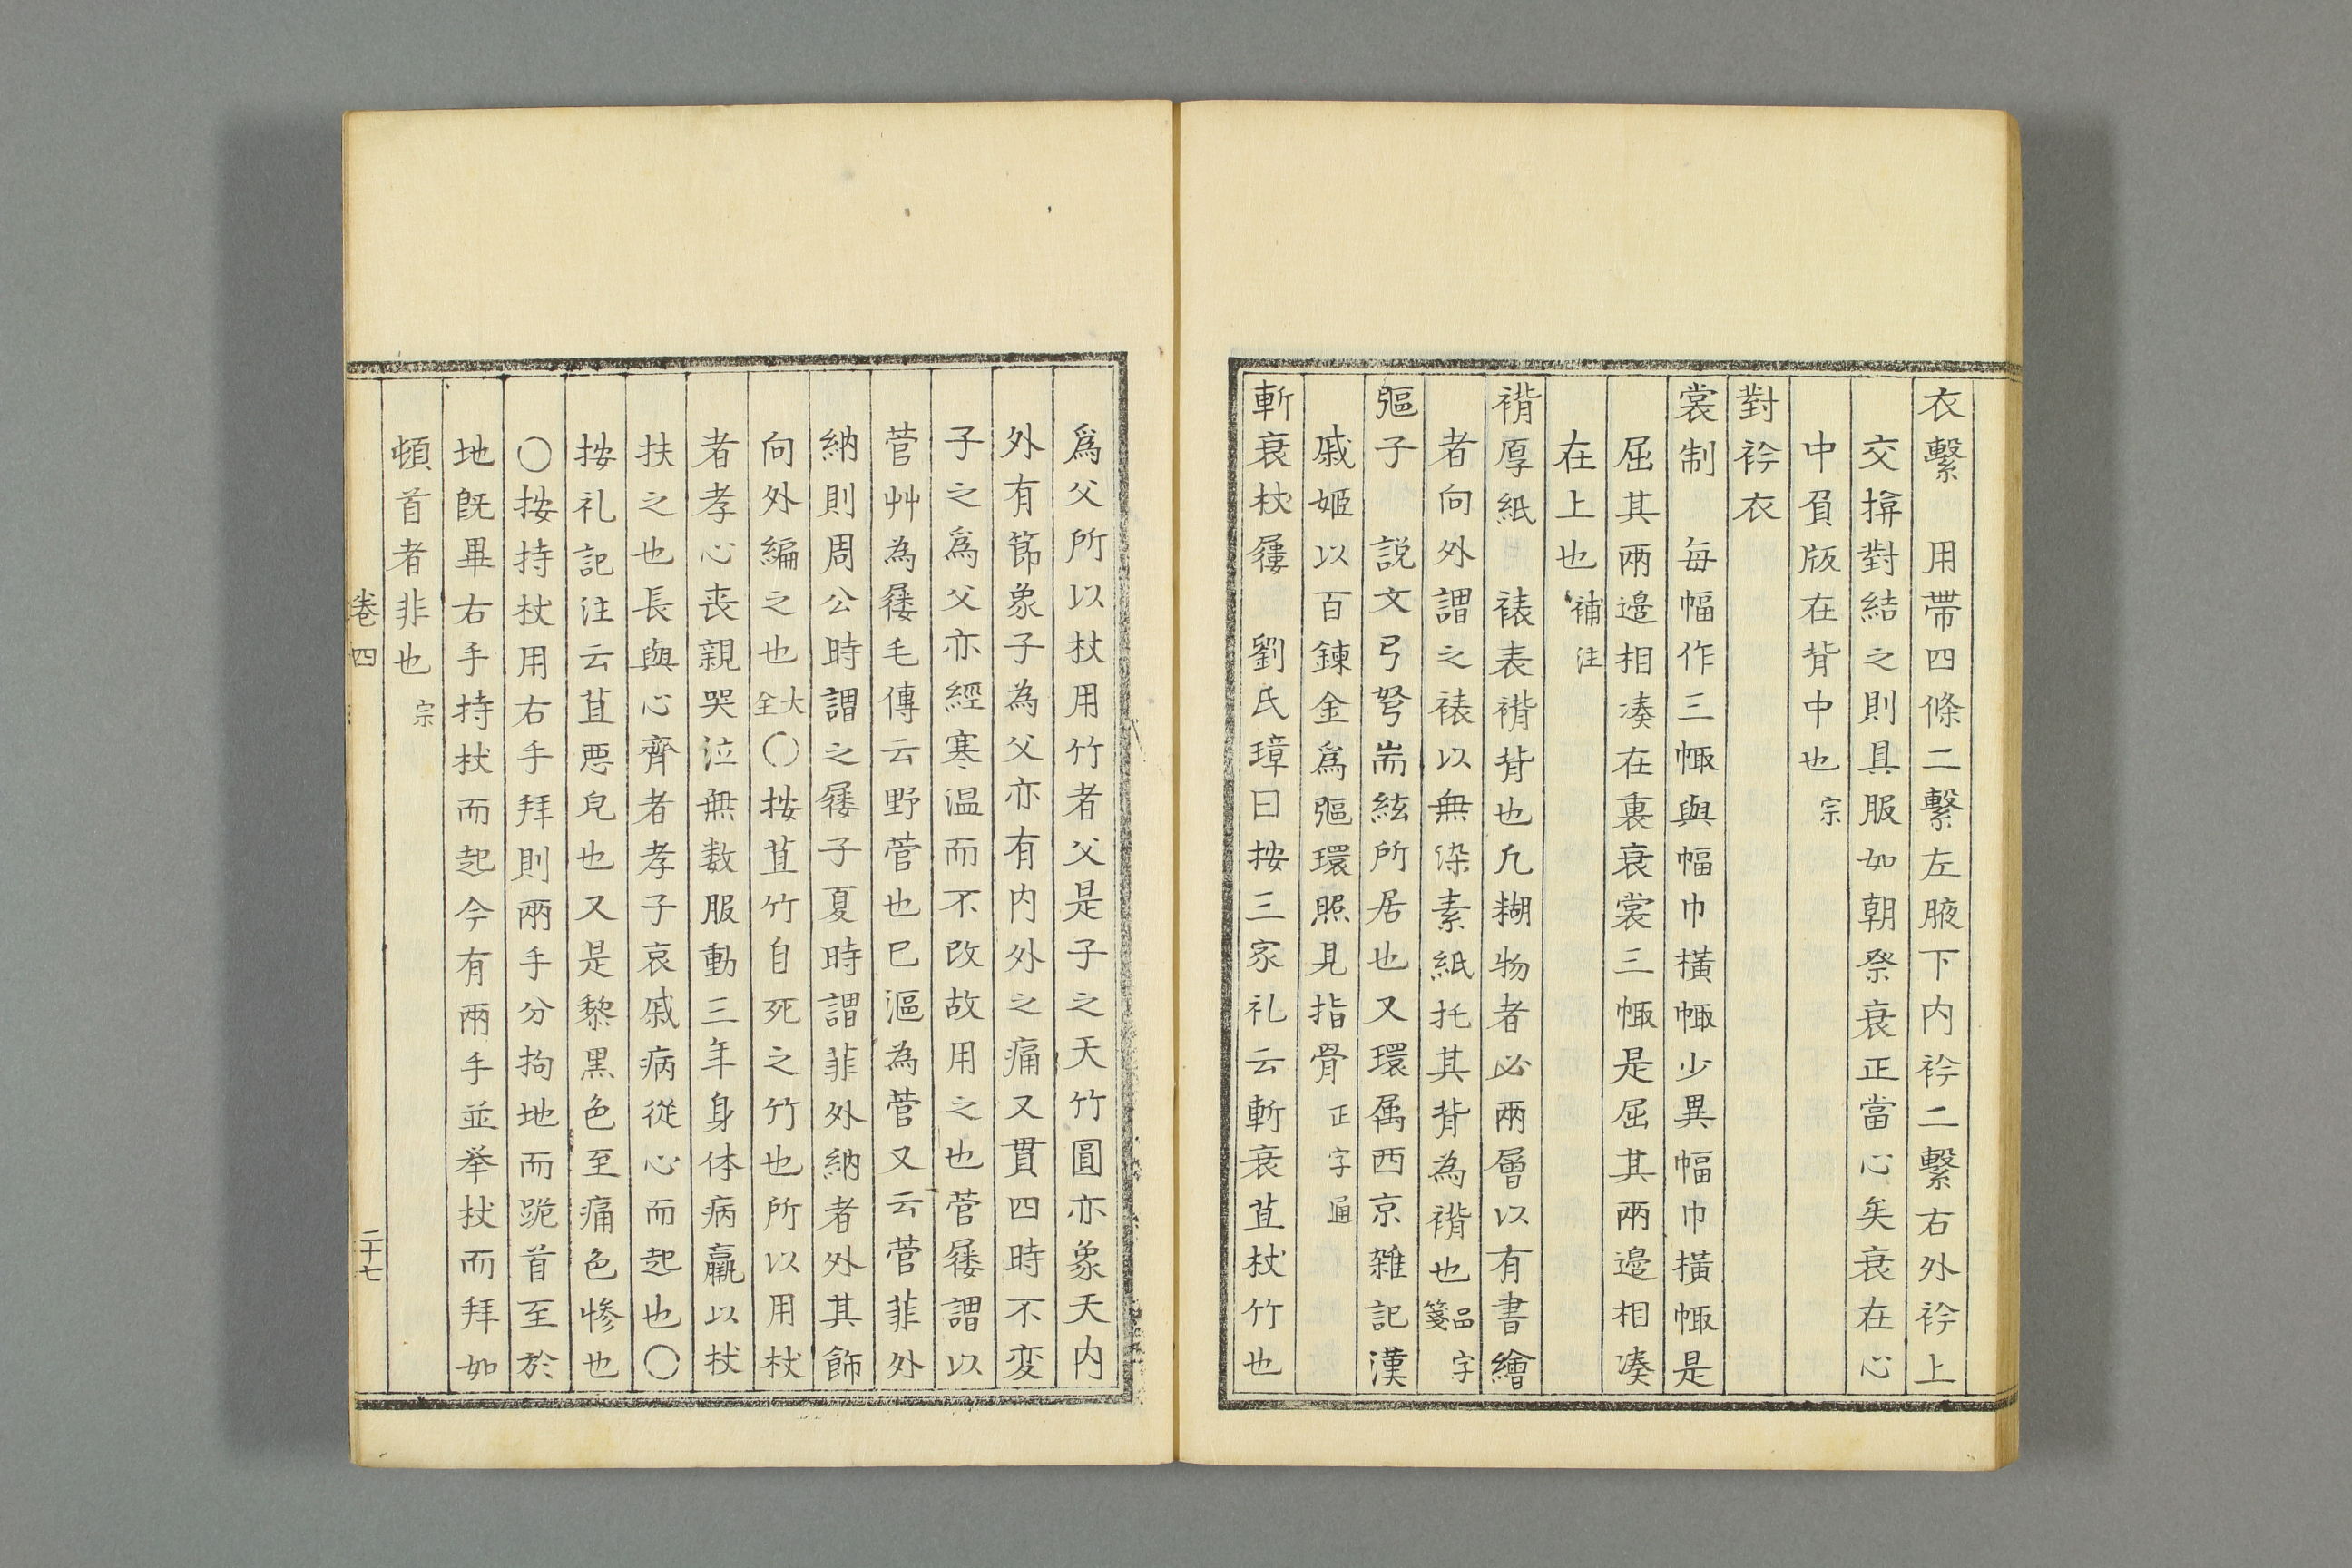 衣繫　用帶四條二繫左腋下内衿二繫右外衿上
交揜對結之則具服如朝祭衰正當心矣衰在心
中負版在背中也宗
對衿衣
裳制　每幅作三㡇與幅巾橫㡇少異幅巾橫㡇是
屈其兩邉相湊在裏衰裳三㡇是屈其兩邉相湊
在上也補注
褙厚紙　裱表褙背也凢糊物者必兩層以有書繪
者向外謂之裱以無染素紙托其背為褙也品字箋
彄子　說文弓弩耑絃所居也又環属西京雜記漢
戚姬以百鍊金爲彄環照見指骨正字通
斬衰杖屨　劉氏璋曰按三家礼云斬衰苴杖竹也
爲父所以杖用竹者父是子之天竹圓亦象天内
外有節象子為父亦有内外之痛又貫四時不变
子之爲父亦經寒温而不改故用之也菅屨謂以
菅艸為屨毛傳云野菅也已漚為菅又云菅菲外
納則周公時謂之屨子夏時謂菲外納者外其飾
向外編之也大全〇按苴竹自死之竹也所以用杖
者孝心丧親哭泣無数服動三年身体病羸以杖
扶之也長與心齊者孝子哀戚病從心而起也〇
按礼記注云苴悪皃也又是黎黒色至痛色惨也
〇按持杖用右手拜則兩手分拘地而跪首至於
地既畢右手持杖而起今有兩手並举杖而拜如
頓首者非也宗
卷四
二十七